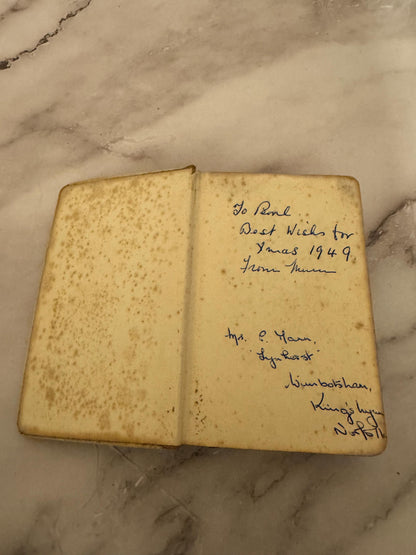 To
Best Wishs for
Xmas 1949
From Mum
Mrs. C.
"Lynhurst"
Wimbotsham,
King's Lynn
Norfolk